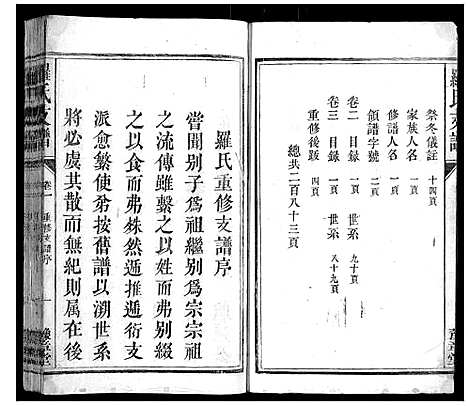 祭冬儀註 十四頁
家族人名 一頁
修譜人名 一頁
領譜字號 二頁
卷二 目錄 一頁 世系 九十頁
卷三 目錄 一頁 世系 八十九頁
重修後跋 四頁
總共二百八十三頁
羅氏支譜
豫章堂
羅氏重修支譜序
嘗聞别子為祖繼别為宗宗祖
之流傳雖繫之以姓而弗别綴
之以食而弗殊然遞推遞衍支
派愈繁使弟按舊譜以溯世系
將必虞其散而無紀則属在後
羅氏支譜
卷一
重修支譜序
一
豫章堂